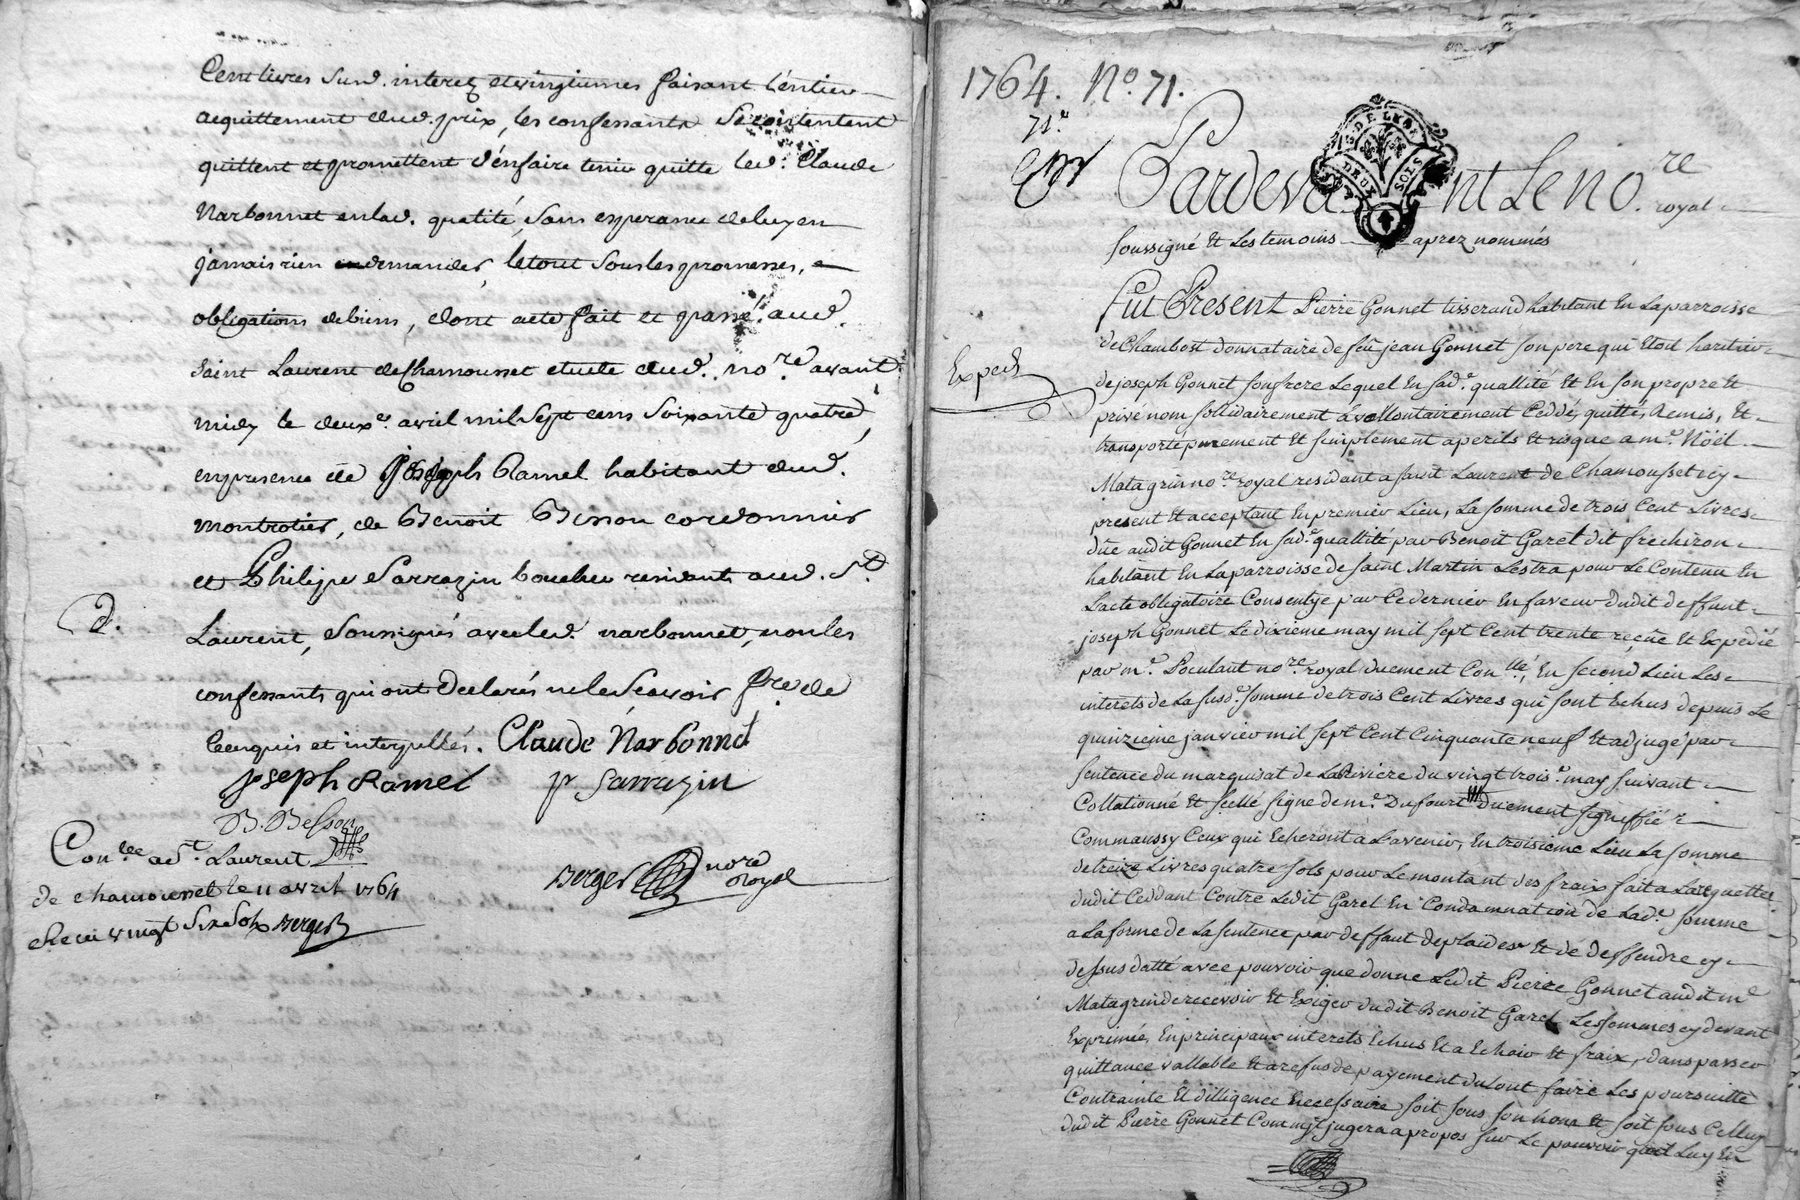 Cent livres sud. interetz et vingtiemes faisant l'entier
acquittement dud. prix, les confessants se contentent
quittent et promettent d'en faire tenir quitte led. Claude
Narbonnet en lad. qualité, sans esperance de luy en
jamais rien demander, le tout sous les promesses,
obligations de biens, dont acte fait et passé aud.
saint Laurent de Chamousset etude dud. no.re avant
midy le deuxe. avril mil sept cens soixante quatre,
en presence de Joseph Ramel habitant dud.
montrotier, de Benoit Besson cordonnier
et Philipe Sarrazin boucher residants aud. St.
Laurent, soussignés avec led. narbonnet, non les
confessants qui ont declarés ne le sçavoir faire de
ce enquis et interpellés. Claude Narbonnet
Joseph Ramel p Sarrazin
B. Besson
Con.lee a St. Laurent
de chamousset le 11 avril 1764
Receu vingt six sols Berger
Berger nore royal
1764. No. 71.
71.e
Pardevant Le no.re royal
soussigné Et Les temoins aprez nommés
Fut Présent Pierre Gonnet tisserand habitant En Laparroisse
de Chambost donnataire de feu jean Gonnet son pere qui Etoit heritier
de joseph Gonnet son frere Lequel En sad.e quallité Et En son propre Et
privé nom sollidairement a vollontairement Ceddé, quitté, Remis, Et
transporté purement Et simplement a perils Et risque a m.e Nöël
Matagrin no.re royal residant a saint Laurent de Chamousset icy
present Et acceptant En premier Lieu, La somme de trois Cent Livres
düe audit Gonnet En sad.e quallité par Benoit Garel dit frechiron
habitant En Laparroisse de saint Martin Lestra pour Le Contenu En
Lacte obligatoire Consentye par Ce dernier En faveur dudit deffunt
joseph Gonnet Le dixieme may mil sept Cent trente reçüe Et Expedié
par m.e Poculant no.re royal duement Con.llé, En second Lieu Les
interets de La susd.e somme de trois Cent Livres qui sont Echus depuis Le
quinzieme janvier mil sept Cent Cinquante neuf Et adjugé par
sentence du marquisat de La Riviere du vingt trois.e may suivant
Collationné Et scellé signe de m.e Dufourt duement signeffié
Comm aussy Ceux qui Echeront a L'avenir, En troisieme Lieu La somme
de treize Livres quatre sols pour Le montant des fraix fait a La requette
dudit Ceddant Contre Ledit Garel En Condamnation de Lad.e somme
a La forme de La sentence par deffaut de plaider Et de deffendre cy
dessus datté avec pouvoir que donne Ledit Pierre Gonnet audit m.e
Matagrin de recevoir Et Exiger dudit Benoit Garel Les sommes cy devant
Exprimée, En principaux interets Echus Et a Echoir Et fraix, d'ans passer
quittance vallable Et a refus de payement du tout faire Les poursuitte
Contrainte Et dilligence necessaire soit sous son nom Et soit sous Celluy
dudit Pierre Gonnet Comm jl jugera a propos sur Le pouvoir quil Luy En
Exped
G. DE LYON
DEUX SOLS